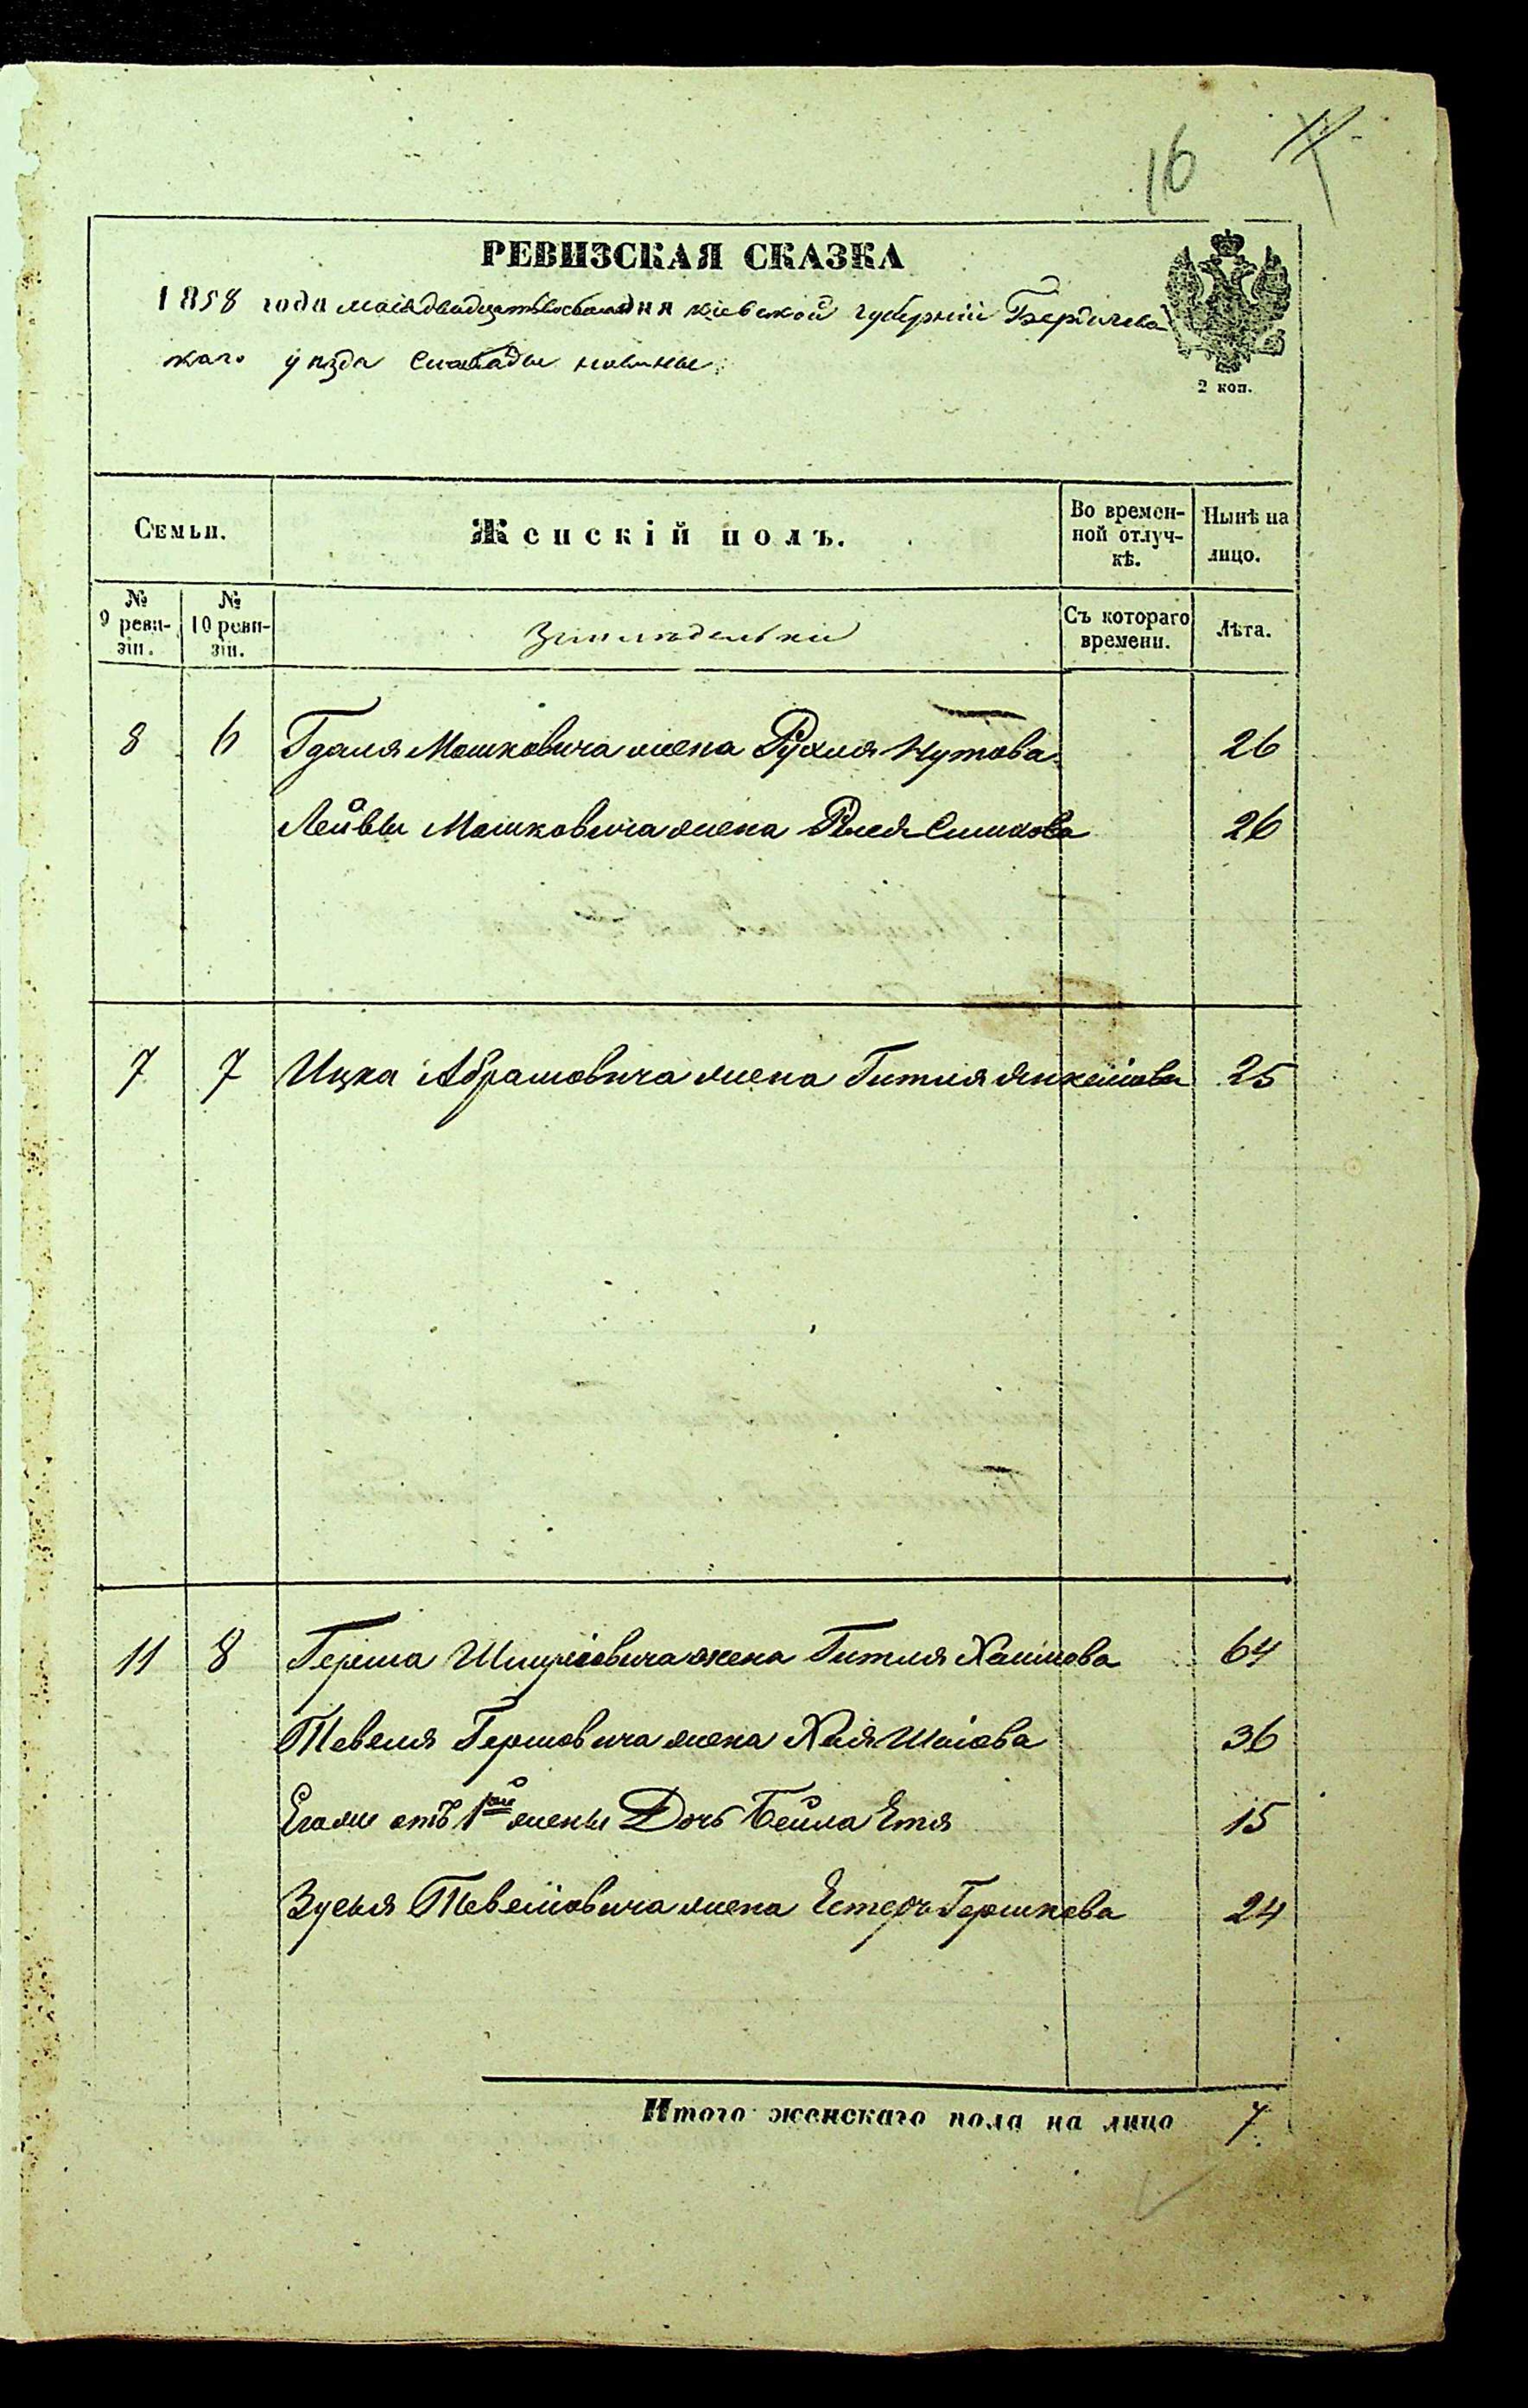 16
РЕВИЗСКАЯ СКАЗКА
1858 года маія двадцать дня Кіевской губерніи Бердичева
каго уѣзда Слободы
2 коп.
Семьи.
Женскій полъ.
Во времен-
ной отлуч-
кѣ.
Нынѣ на
лицо.
№
9 реви-
зіи.
№
10 реви-
зіи.
Земледельки
Съ котораго
времени.
Лѣта.
8 6 Гдаля Мошковича жена Рухля Нутова 26
Лейвы Мошковича жена 26
7 7 Ицка Абрамовича жена Гитля Янкелiова 25
11 8 Герша Шмулiовича жена Гитля Хаимова 64
Тевеля Гершовича жена Хая Шаiова 36
Егоже отъ 1ой жены Дочь Бейла Етя 15
Зуселя Тевелiовича жена Естеръ Гершкова 24
Итого женскаго пола на лицо 7